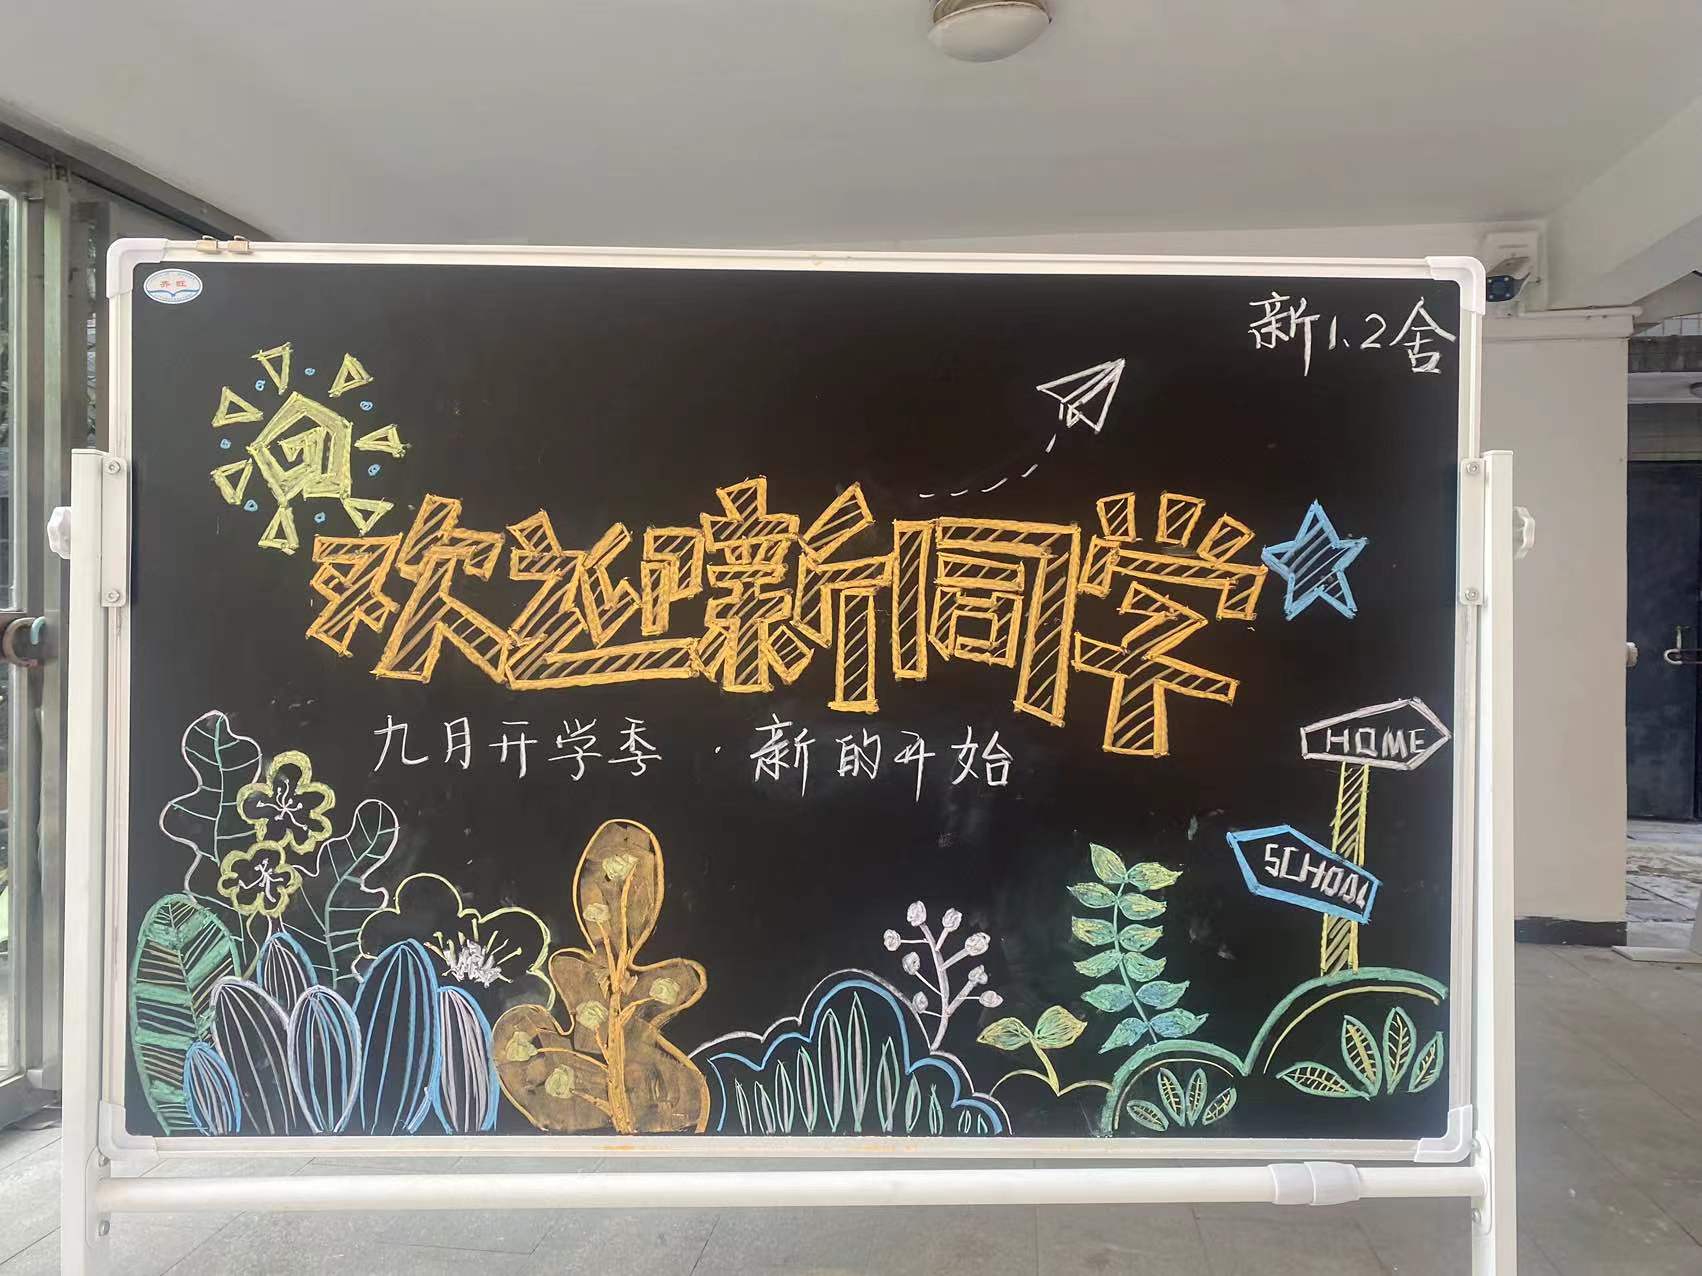 齐旺
新1、2舍
欢迎新同学
九月开学季·新的开始
HOME
SCHOOL